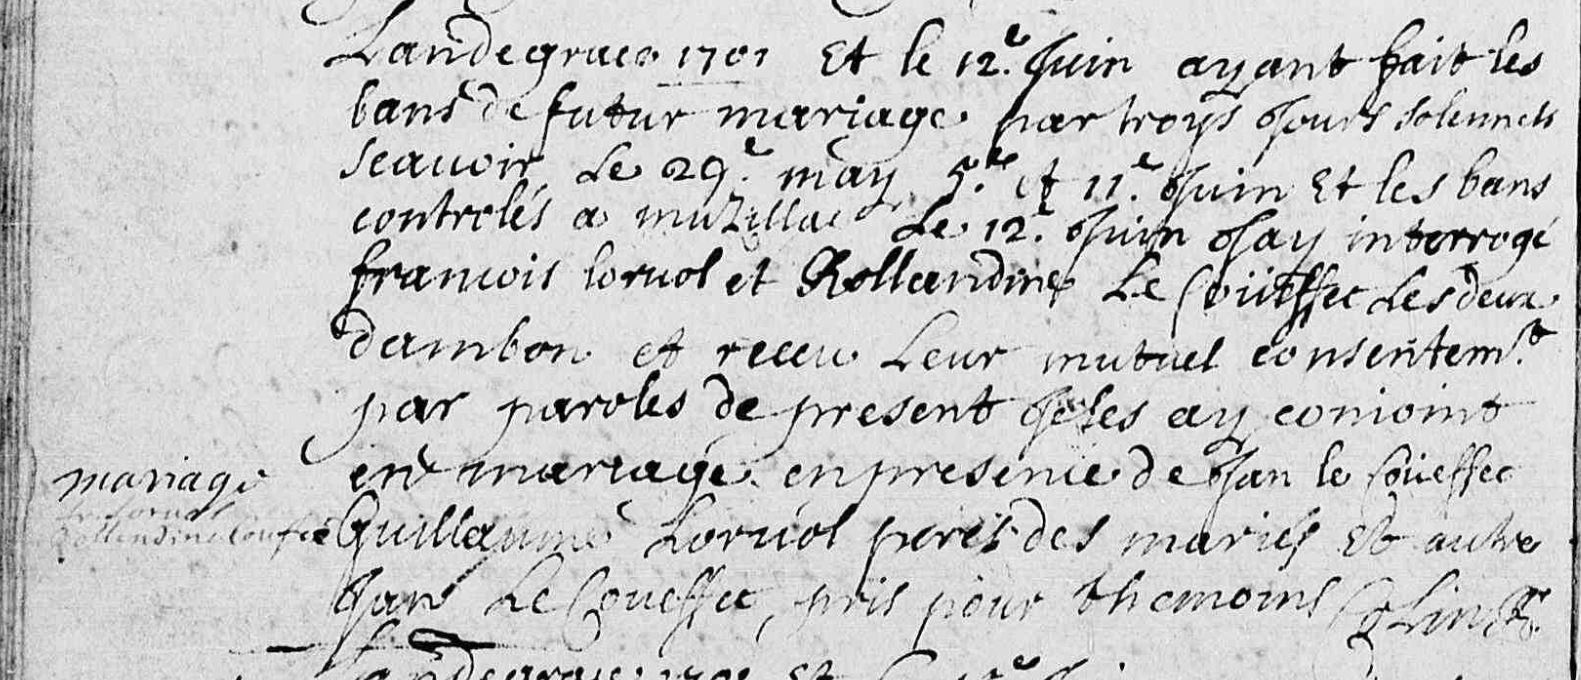 Landegrace 1701 Et le 12.e Juin ayant fait les
bans de futur mariage par troys Jours solennels
scavoir Le 29.e may 5.e et 11.e Juin Et les bans
controlés a muzillac Le 12.e Juin Jay interrogé
francois lorvol et Rollandine Le Coüeffec Les deux
dambon et receu Leur mutuel consentem.t
par paroles de present Je les ay conioint
en mariage en presence de Jan le Coüeffec
mariage
Guillaume Lorvol peres des mariés Et autre
Jan Le Coueffec, pris pour themoins
Landegrace 1701 Et